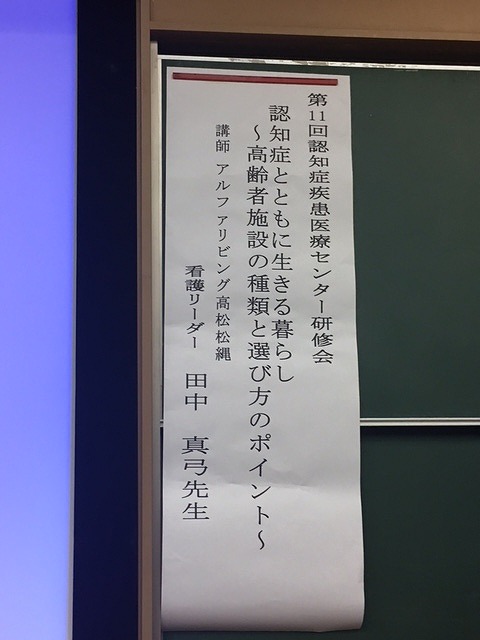 第11回認知症疾患医療センター研修会
認知症とともに生きる暮らし
～高齢者施設の種類と選び方のポイント～
講師 アルファリビング高松松縄
看護リーダー 田中 真弓先生